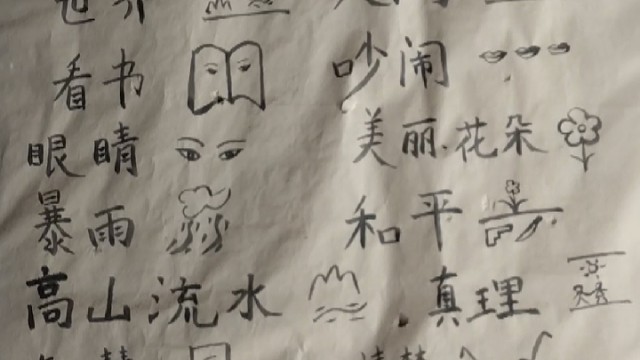 世界
看书 吵闹
眼睛 美丽.花朵
暴雨 和平
高山流水 .真理